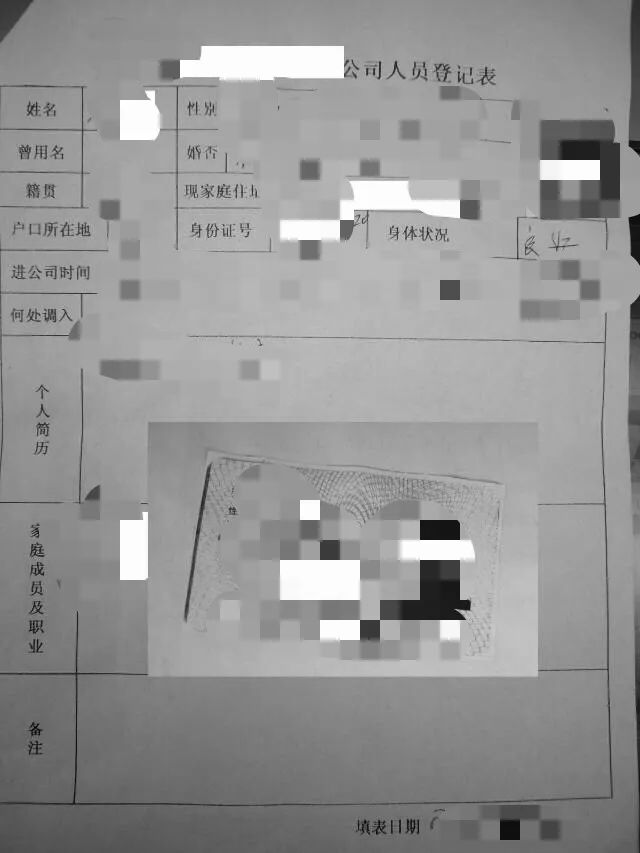 公司人员登记表
姓名 性别
曾用名 婚否
籍贯 现家庭住址
户口所在地 身份证号 身体状况 良好
进公司时间
何处调入
个人简历
家庭成员及职业
备注
填表日期